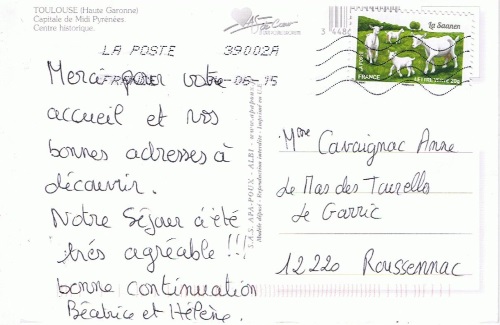 TOULOUSE (Haute Garonne)
Capitale de Midi Pyrénées
Centre historique.
LA POSTE 39002A
FRANCE -06-15
La Saanen
FRANCE
LETTRE VERTE 20g
Merci pour votre
accueil et vos
bonnes adresses à
découvrir.
Notre Séjour a été
très agréable !!!
bonne continuation
Béatrice et Hélène.
S.A.S. APA-POUX - ALBI - www.apapoux.
Modèle déposé - Reproduction interdite - Imprimé en U.E.
Mme Cavaignac Anne
Le Mas des Tourelles
Le Garric
12220 Roussennac